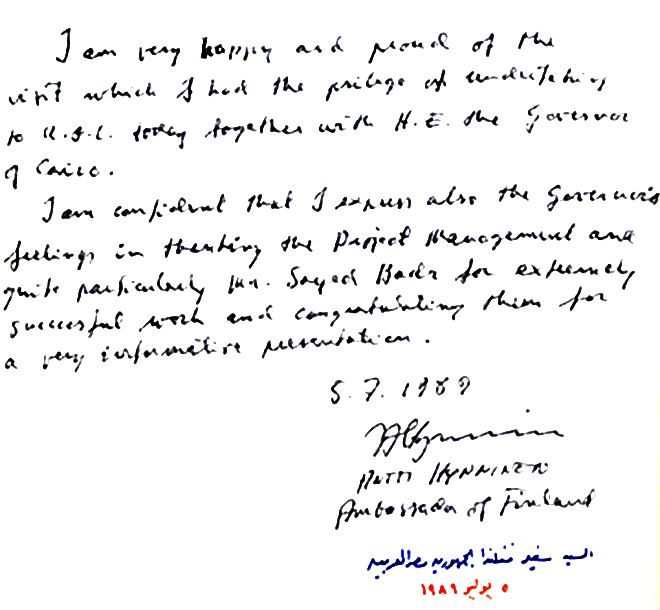 I am very happy and proud of the
visit which I had the privilege of undertaking
to today together with H.E. the Governor
of Cairo.
I am confident that I express also the Governor's
feelings in thanking the Project Management and
quite particularly Mr. Sayed Badr for extremely
successful work and congratulating them for
a very informative presentation.
5.7.1989
Ambassador of Finland
السيد سفير فنلندا بجمهورية مصر العربية
٥ يوليو ١٩٨٩